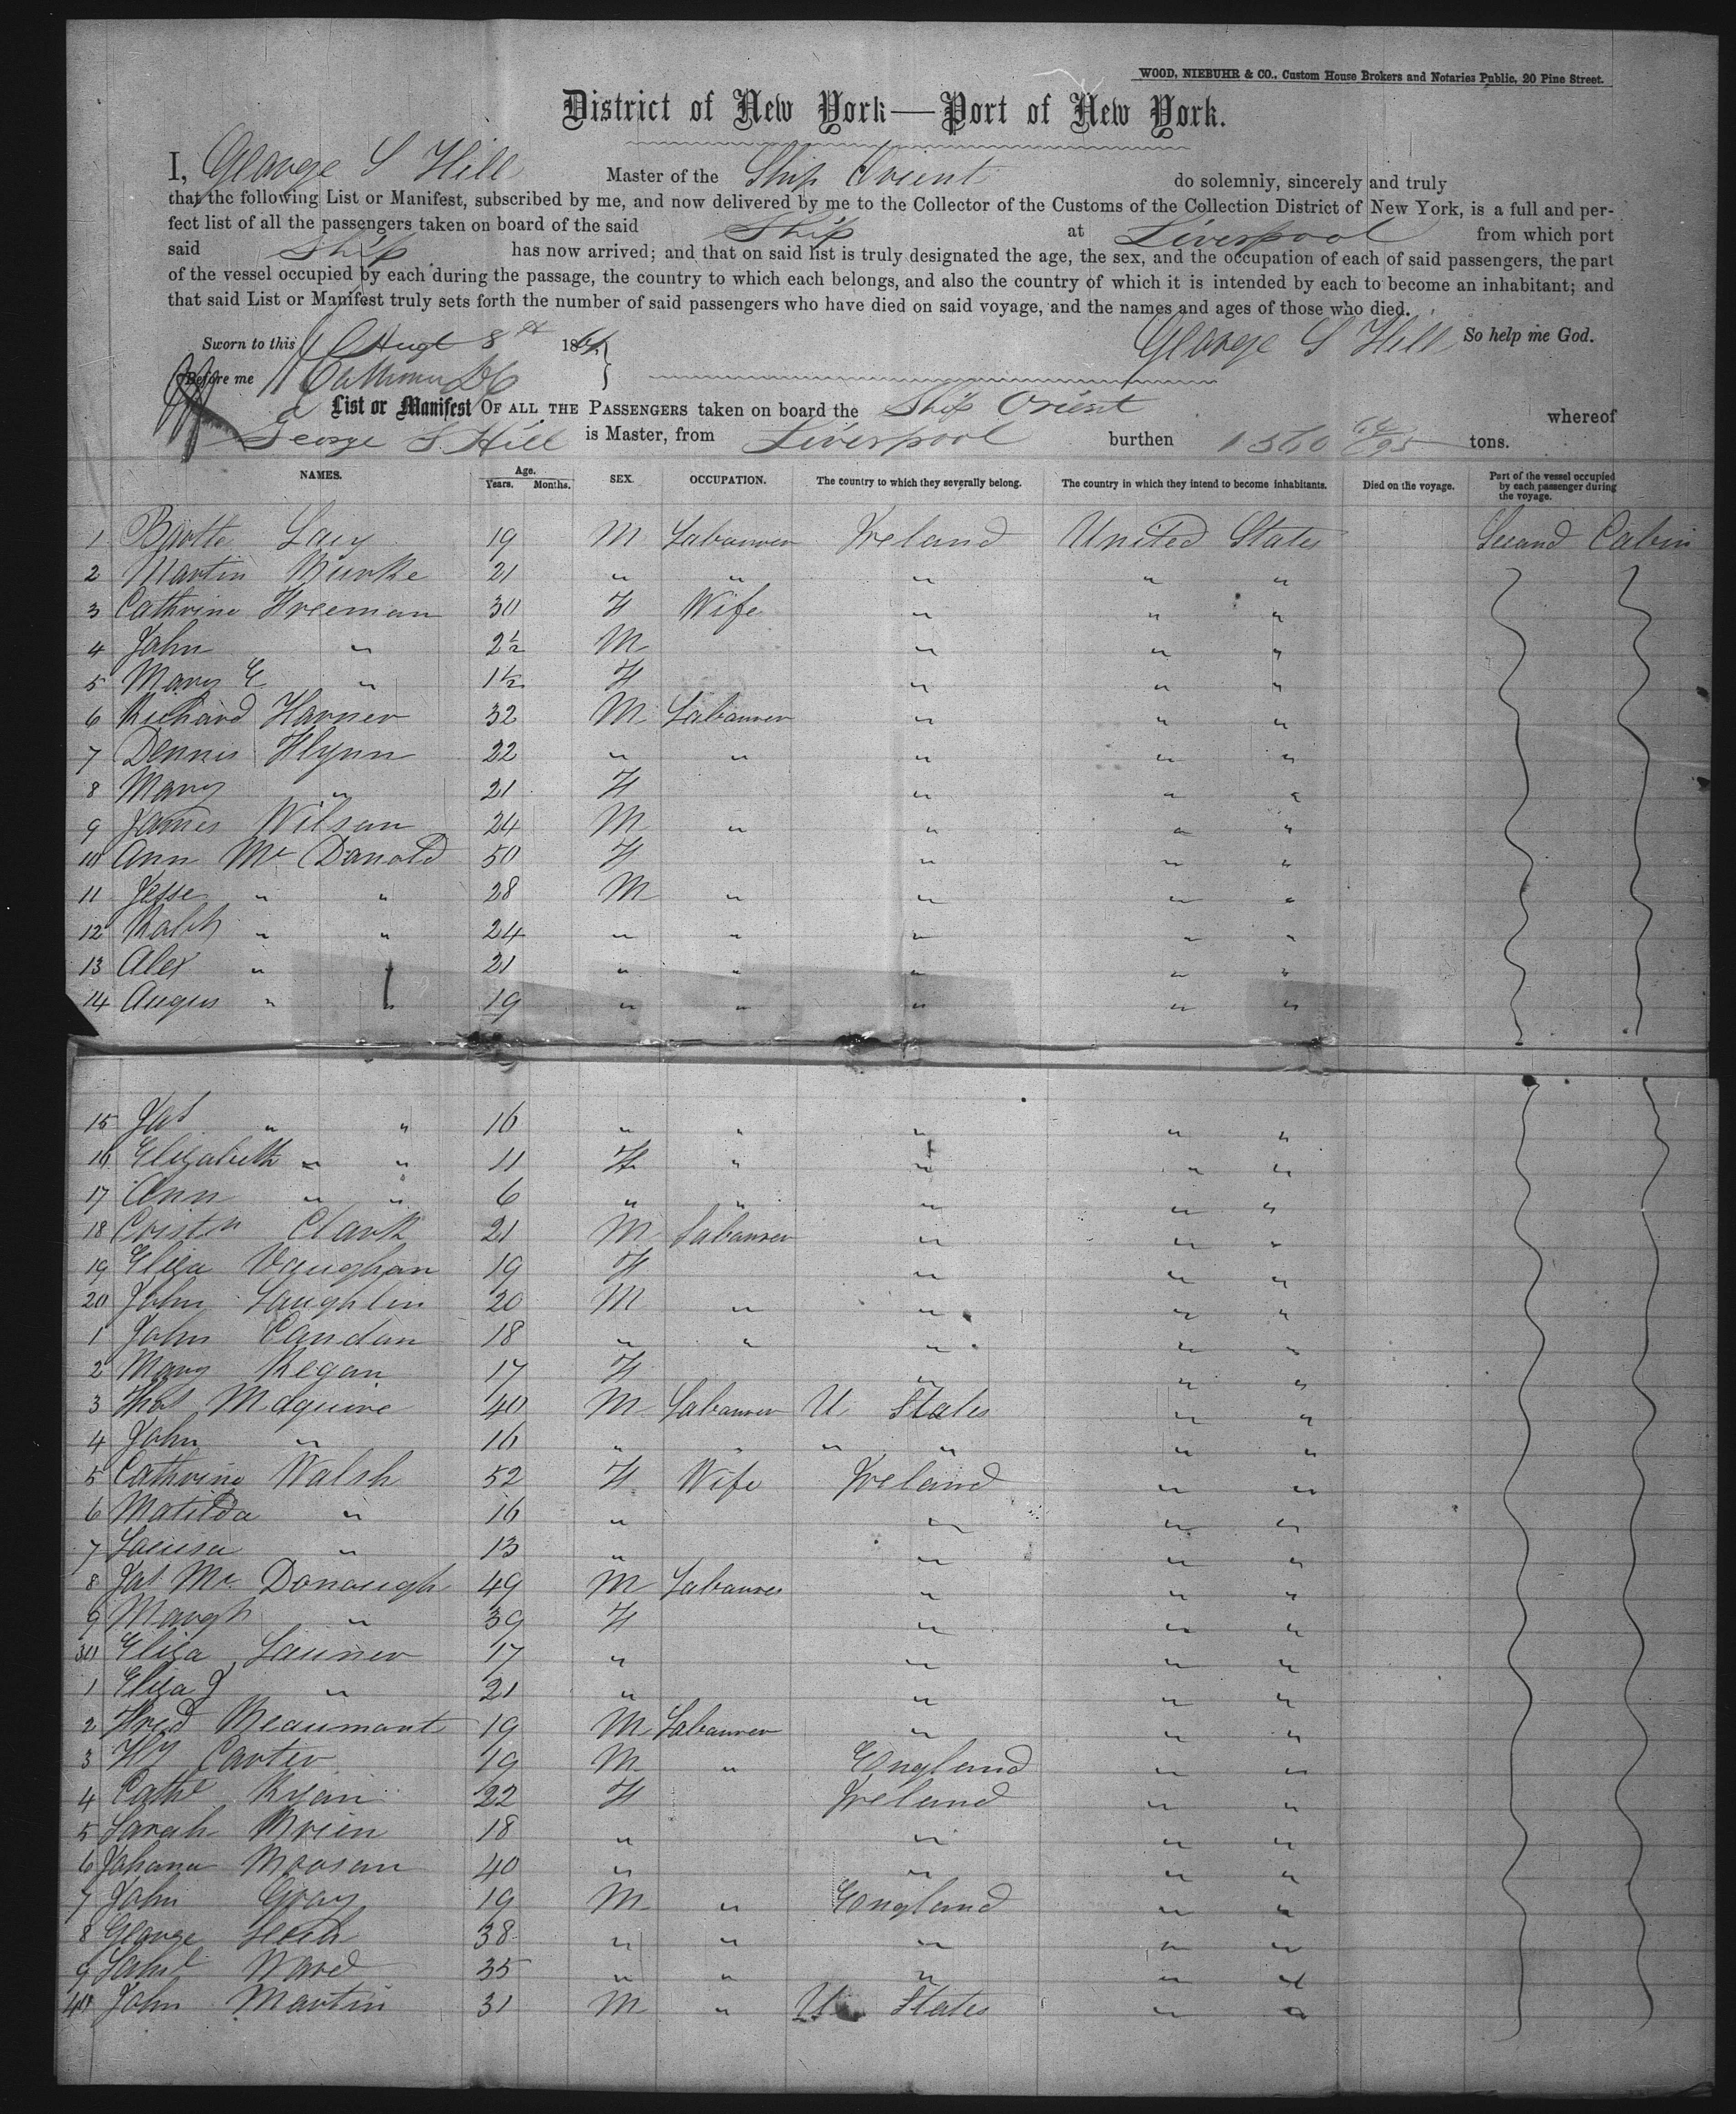 WOOD, NIEBUHR & CO., Custom House Brokers and Notaries Public, 20 Pine Street.
District of New York—Port of New York.
I, George S Hill Master of the Ship Orient do solemnly, sincerely and truly
that the following List or Manifest, subscribed by me, and now delivered by me to the Collector of the Customs of the Collection District of New York, is a full and per-
fect list of all the passengers taken on board of the said Ship at Liverpool from which port
said Ship has now arrived; and that on said list is truly designated the age, the sex, and the occupation of each of said passengers, the part
of the vessel occupied by each during the passage, the country to which each belongs, and also the country of which it is intended by each to become an inhabitant; and
that said List or Manifest truly sets forth the number of said passengers who have died on said voyage, and the names and ages of those who died.
Sworn to this Augt 8th 186 George S Hill So help me God.
Before me
List or Manifest OF ALL THE PASSENGERS taken on board the Ship Orient whereof
George S. Hill is Master, from Liverpool burthen 1560 /95 tons.
NAMES. Age. Years. Months. SEX. OCCUPATION. The country to which they severally belong. The country in which they intend to become inhabitants. Died on the voyage. Part of the vessel occupied by each passenger during the voyage.
1 Lacy 19 M Labourer Ireland United States Second Cabin
2 Martin Burke 21 " " " " "
3 Cathrine Freeman 30 F Wife " " "
4 John " 2½ M " " "
5 Mary E " 1½ F " " "
6 Richard 32 M Labourer " " "
7 Dennis Flynn 22 " " " " "
8 Mary " 21 F " " "
9 James Wilson 24 M " " " "
10 Ann Mc Donald 50 F " " "
11 Jesse " " 28 M " " " "
12 Ralph " " 24 " " " " "
13 Alex " " 21 " " " " "
14 Angus " " 19 " " " " "
15 Jas " " 16 " " " " "
16 Elizabeth " " 11 F " " " "
17 Ann " " 6 " " " " "
18 Clark 21 M Labourer " " "
19 Eliza Vaughan 19 F " " "
20 John Laughlin 20 M " " " "
1 John Condon 18 " " " " "
2 Mary Regan 17 F " " "
3 Thos Maguire 40 M Labourer U States " "
4 John " 16 " " " " " "
5 Cathrine Walsh 52 F Wife Ireland " "
6 Matilda " 16 " " " "
7 Louisa " 13 " " " "
8 Jas Mc Donough 49 M Labourer " " "
9 Margt " 39 F " " "
30 Eliza 17 " " " "
1 Eliza J " 21 " " " "
2 Fred Beaumont 19 M Labourer " " "
3 Hy Carter 19 M " England " "
4 Cathe Ryan 22 F Ireland " "
5 Sarah Brien 18 " " " "
6 Johana 40 " " " "
7 John Gray 19 M " England " "
8 George 38 " " " " "
9 Saml Ward 35 " " " " "
40 John Martin 31 M " U States " "